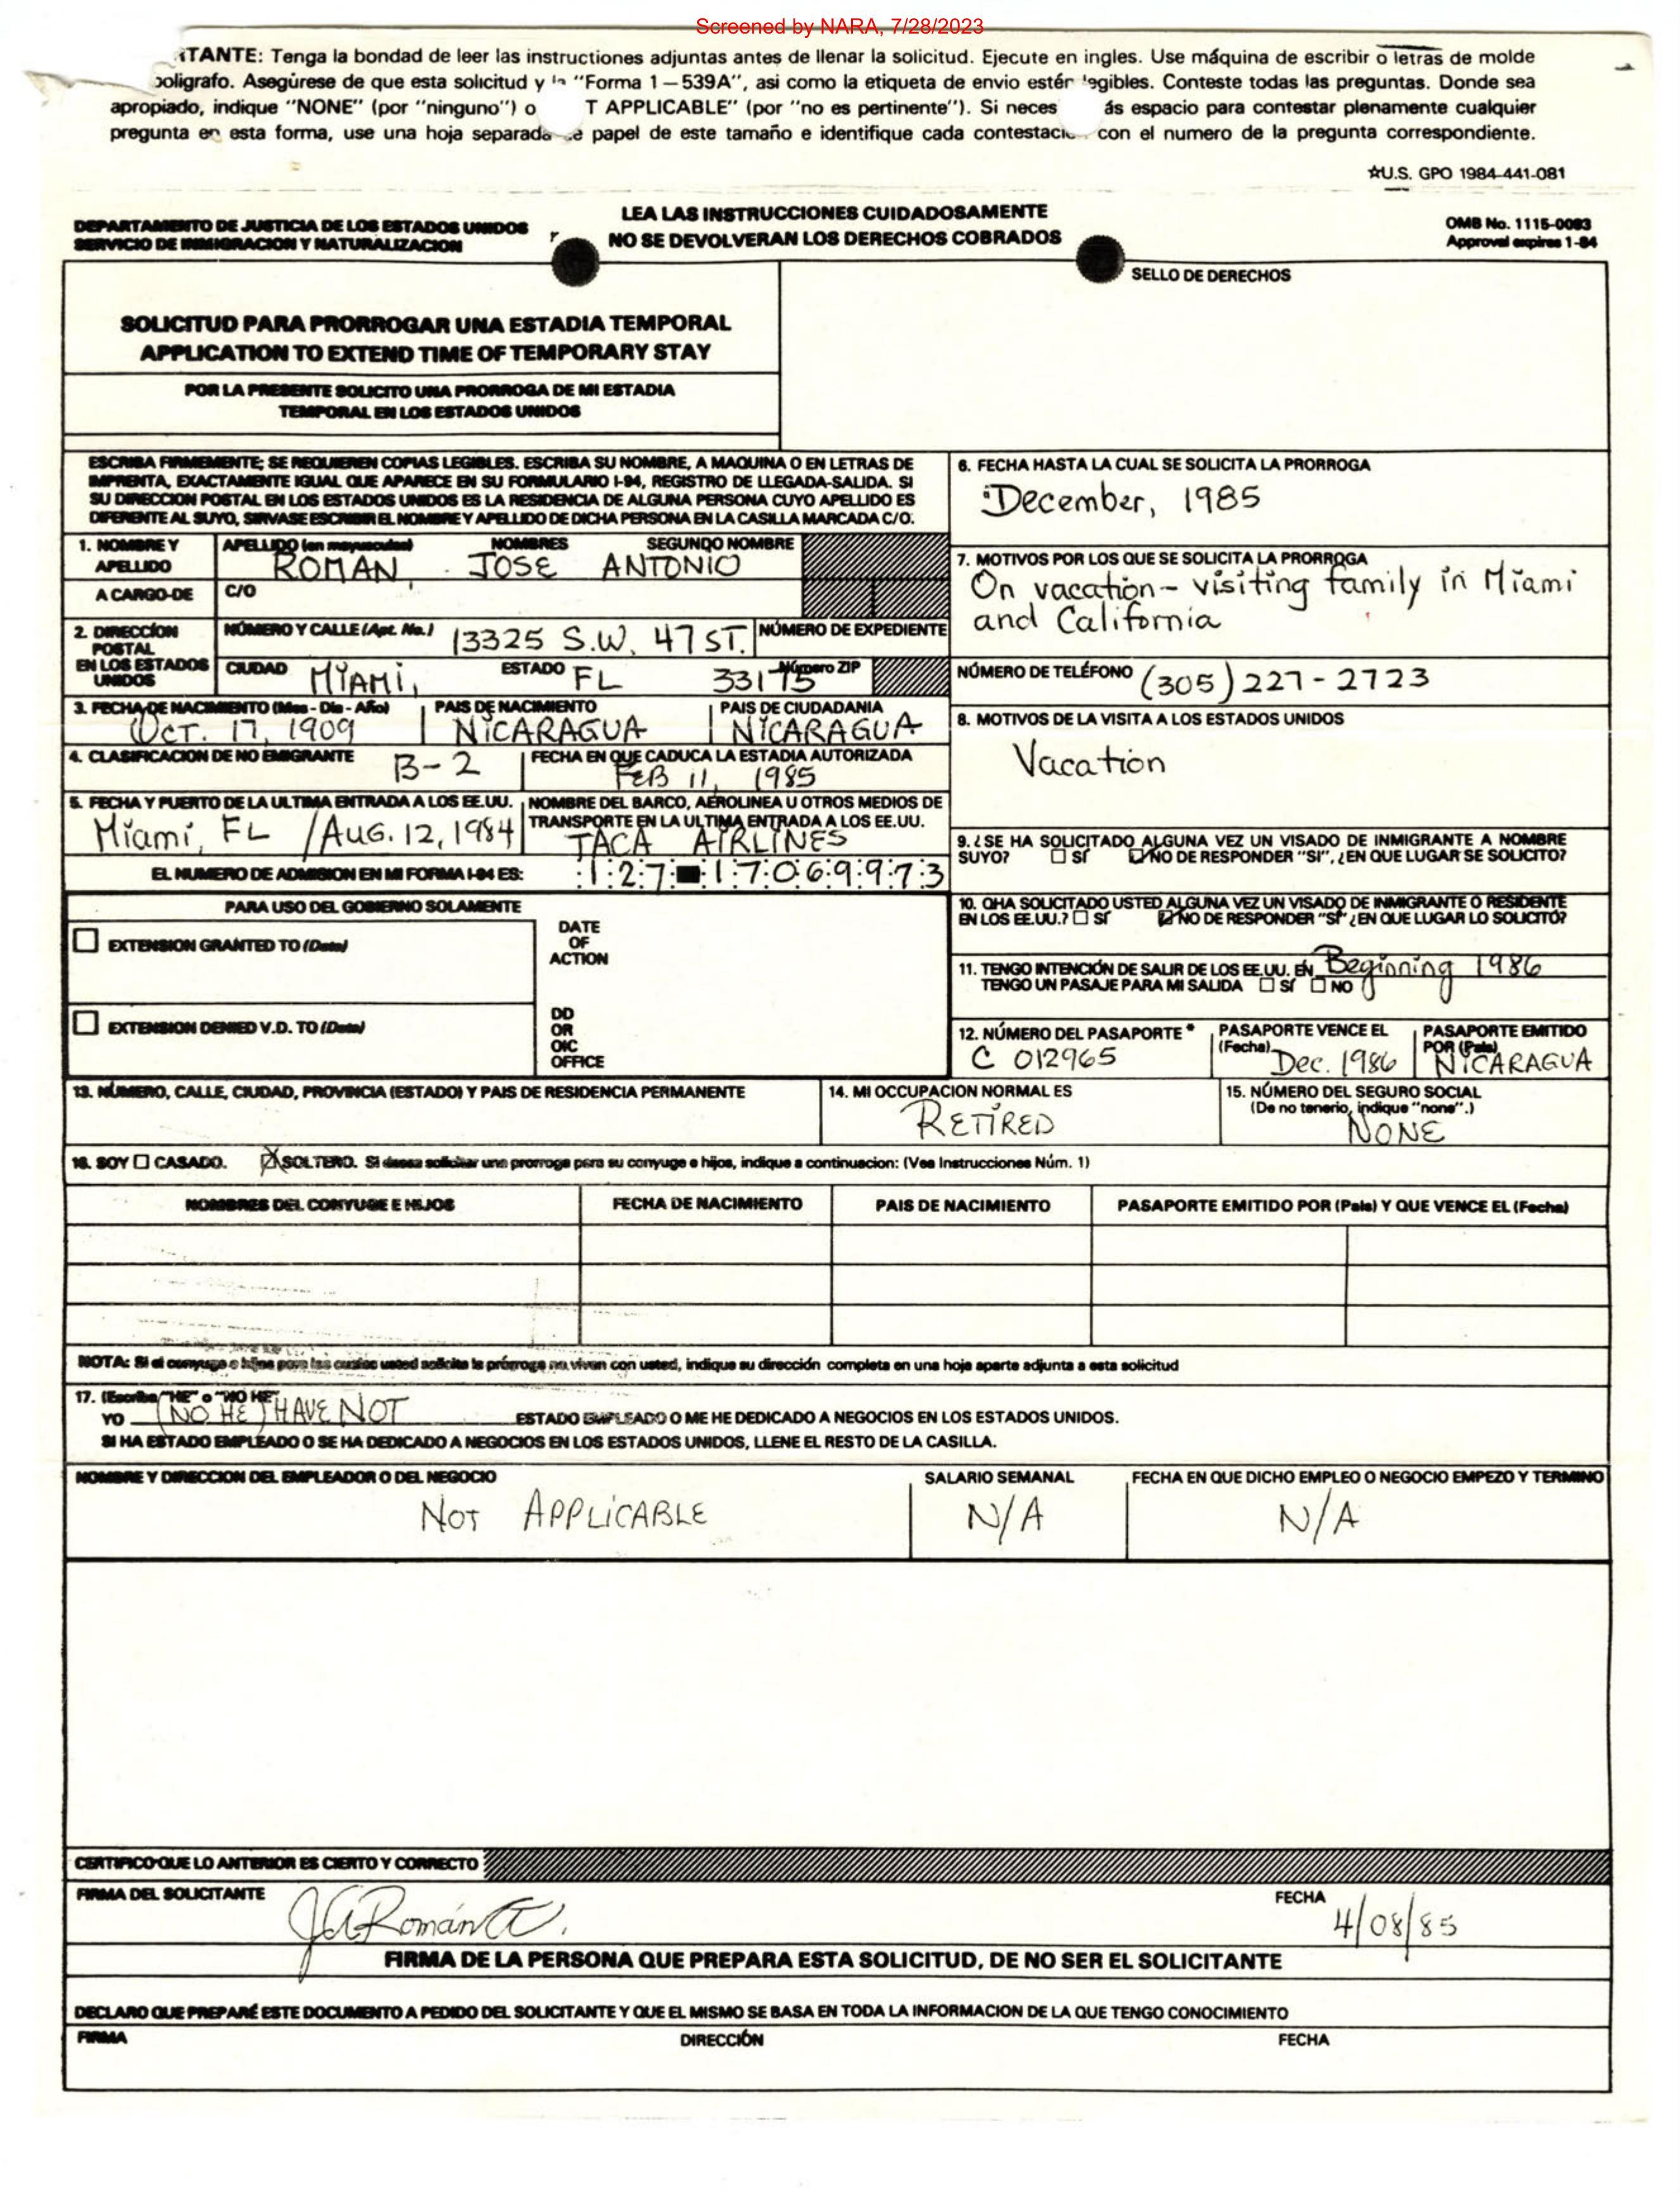 Screened by NARA, 7/28/2023
TANTE: Tenga la bondad de leer las instructiones adjuntas antes de llenar la solicitud. Ejecute en ingles. Use máquina de escribir o letras de molde
boligrafo. Asegúrese de que esta solicitud y la "Forma 1 — 539A", asi como la etiqueta de envio estén legibles. Conteste todas las preguntas. Donde sea
apropiado, indique "NONE" (por "ninguno") o T APPLICABLE" (por "no es pertinente"). Si neces ás espacio para contestar plenamente cualquier
pregunta en esta forma, use una hoja separada de papel de este tamaño e identifique cada contestacio con el numero de la pregunta correspondiente.
☆U.S. GPO 1984-441-081
DEPARTAMENTO DE JUSTICIA DE LOS ESTADOS UNIDOS
SERVICIO DE INMIGRACION Y NATURALIZACION
LEA LAS INSTRUCCIONES CUIDADOSAMENTE
NO SE DEVOLVERAN LOS DERECHOS COBRADOS
OMB No. 1115-0083
Approval expires 1-84
SELLO DE DERECHOS
SOLICITUD PARA PRORROGAR UNA ESTADIA TEMPORAL
APPLICATION TO EXTEND TIME OF TEMPORARY STAY
POR LA PRESENTE SOLICITO UNA PRORROGA DE MI ESTADIA
TEMPORAL EN LOS ESTADOS UNIDOS
ESCRIBA FIRMEMENTE; SE REQUIEREN COPIAS LEGIBLES. ESCRIBA SU NOMBRE, A MAQUINA O EN LETRAS DE
IMPRENTA, EXACTAMENTE IGUAL QUE APARECE EN SU FORMULARIO I-94, REGISTRO DE LLEGADA-SALIDA. SI
SU DIRECCION POSTAL EN LOS ESTADOS UNIDOS ES LA RESIDENCIA DE ALGUNA PERSONA CUYO APELLIDO ES
DIFERENTE AL SUYO, SIRVASE ESCRIBIR EL NOMBRE Y APELLIDO DE DICHA PERSONA EN LA CASILLA MARCADA C/O.
6. FECHA HASTA LA CUAL SE SOLICITA LA PRORROGA
December, 1985
1. NOMBRE Y APELLIDO
APELLIDO (en mayusculas) NOMBRES SEGUNDO NOMBRE
ROMAN, JOSE ANTONIO
A CARGO-DE C/O
7. MOTIVOS POR LOS QUE SE SOLICITA LA PRORROGA
On vacation - visiting family in Miami
and California
2. DIRECCÍON POSTAL EN LOS ESTADOS UNIDOS
NÚMERO Y CALLE (Apt. No.) 13325 S.W. 47 ST. NÚMERO DE EXPEDIENTE
CIUDAD MIAMI, ESTADO FL 33175 Número ZIP
NÚMERO DE TELÉFONO (305) 227-2723
3. FECHA DE NACIMIENTO (Mes - Dia - Año) PAIS DE NACIMIENTO PAIS DE CIUDADANIA
OCT. 17, 1909 NICARAGUA NICARAGUA
8. MOTIVOS DE LA VISITA A LOS ESTADOS UNIDOS
Vacation
4. CLASIFICACION DE NO EMIGRANTE B-2
FECHA EN QUE CADUCA LA ESTADIA AUTORIZADA
FEB 11, 1985
5. FECHA Y PUERTO DE LA ULTIMA ENTRADA A LOS EE.UU.
Miami, FL / AUG. 12, 1984
NOMBRE DEL BARCO, AEROLINEA U OTROS MEDIOS DE
TRANSPORTE EN LA ULTIMA ENTRADA A LOS EE.UU.
TACA AIRLINES
9. ¿SE HA SOLICITADO ALGUNA VEZ UN VISADO DE INMIGRANTE A NOMBRE
SUYO? SÍ NO DE RESPONDER "SI", ¿EN QUE LUGAR SE SOLICITO?
EL NUMERO DE ADMISION EN MI FORMA I-94 ES: 127 17069973
10. QHA SOLICITADO USTED ALGUNA VEZ UN VISADO DE INMIGRANTE O RESIDENTE
EN LOS EE.UU.? SÍ NO DE RESPONDER "SI" ¿EN QUE LUGAR LO SOLICITÓ?
PARA USO DEL GOBIERNO SOLAMENTE
EXTENSION GRANTED TO (Date)
DATE
OF
ACTION
11. TENGO INTENCIÓN DE SALIR DE LOS EE.UU. EN Beginning 1986
TENGO UN PASAJE PARA MI SALIDA SÍ NO
EXTENSION DENIED V.D. TO (Date)
DD
OR
OIC
OFFICE
12. NÚMERO DEL PASAPORTE * PASAPORTE VENCE EL (Fecha) PASAPORTE EMITIDO POR (Pais)
C 012965 Dec. 1986 NICARAGUA
13. NÚMERO, CALLE, CIUDAD, PROVINCIA (ESTADO) Y PAIS DE RESIDENCIA PERMANENTE
14. MI OCCUPACION NORMAL ES
RETIRED
15. NÚMERO DEL SEGURO SOCIAL
(De no tenerio, indique "none".)
NONE
16. SOY CASADO. SOLTERO. Si desea solicitar una prorroga para su conyuge e hijos, indique a continuacion: (Vea Instrucciones Núm. 1)
NOMBRES DEL CONYUGE E HIJOS FECHA DE NACIMIENTO PAIS DE NACIMIENTO PASAPORTE EMITIDO POR (Pais) Y QUE VENCE EL (Fecha)
NOTA: Si el conyuge o hijos para los cuales usted solicita la prórroga no viven con usted, indique su dirección completa en una hoja aparte adjunta a esta solicitud
17. (Escriba "HE" o "NO HE"
YO (NO HE) HAVE NOT ESTADO EMPLEADO O ME HE DEDICADO A NEGOCIOS EN LOS ESTADOS UNIDOS.
SI HA ESTADO EMPLEADO O SE HA DEDICADO A NEGOCIOS EN LOS ESTADOS UNIDOS, LLENE EL RESTO DE LA CASILLA.
NOMBRE Y DIRECCION DEL EMPLEADOR O DEL NEGOCIO SALARIO SEMANAL FECHA EN QUE DICHO EMPLEO O NEGOCIO EMPEZO Y TERMINO
NOT APPLICABLE N/A N/A
CERTIFICO QUE LO ANTERIOR ES CIERTO Y CORRECTO
FIRMA DEL SOLICITANTE FECHA
JARomán 4/08/85
FIRMA DE LA PERSONA QUE PREPARA ESTA SOLICITUD, DE NO SER EL SOLICITANTE
DECLARO QUE PREPARÉ ESTE DOCUMENTO A PEDIDO DEL SOLICITANTE Y QUE EL MISMO SE BASA EN TODA LA INFORMACION DE LA QUE TENGO CONOCIMIENTO
FIRMA DIRECCIÓN FECHA